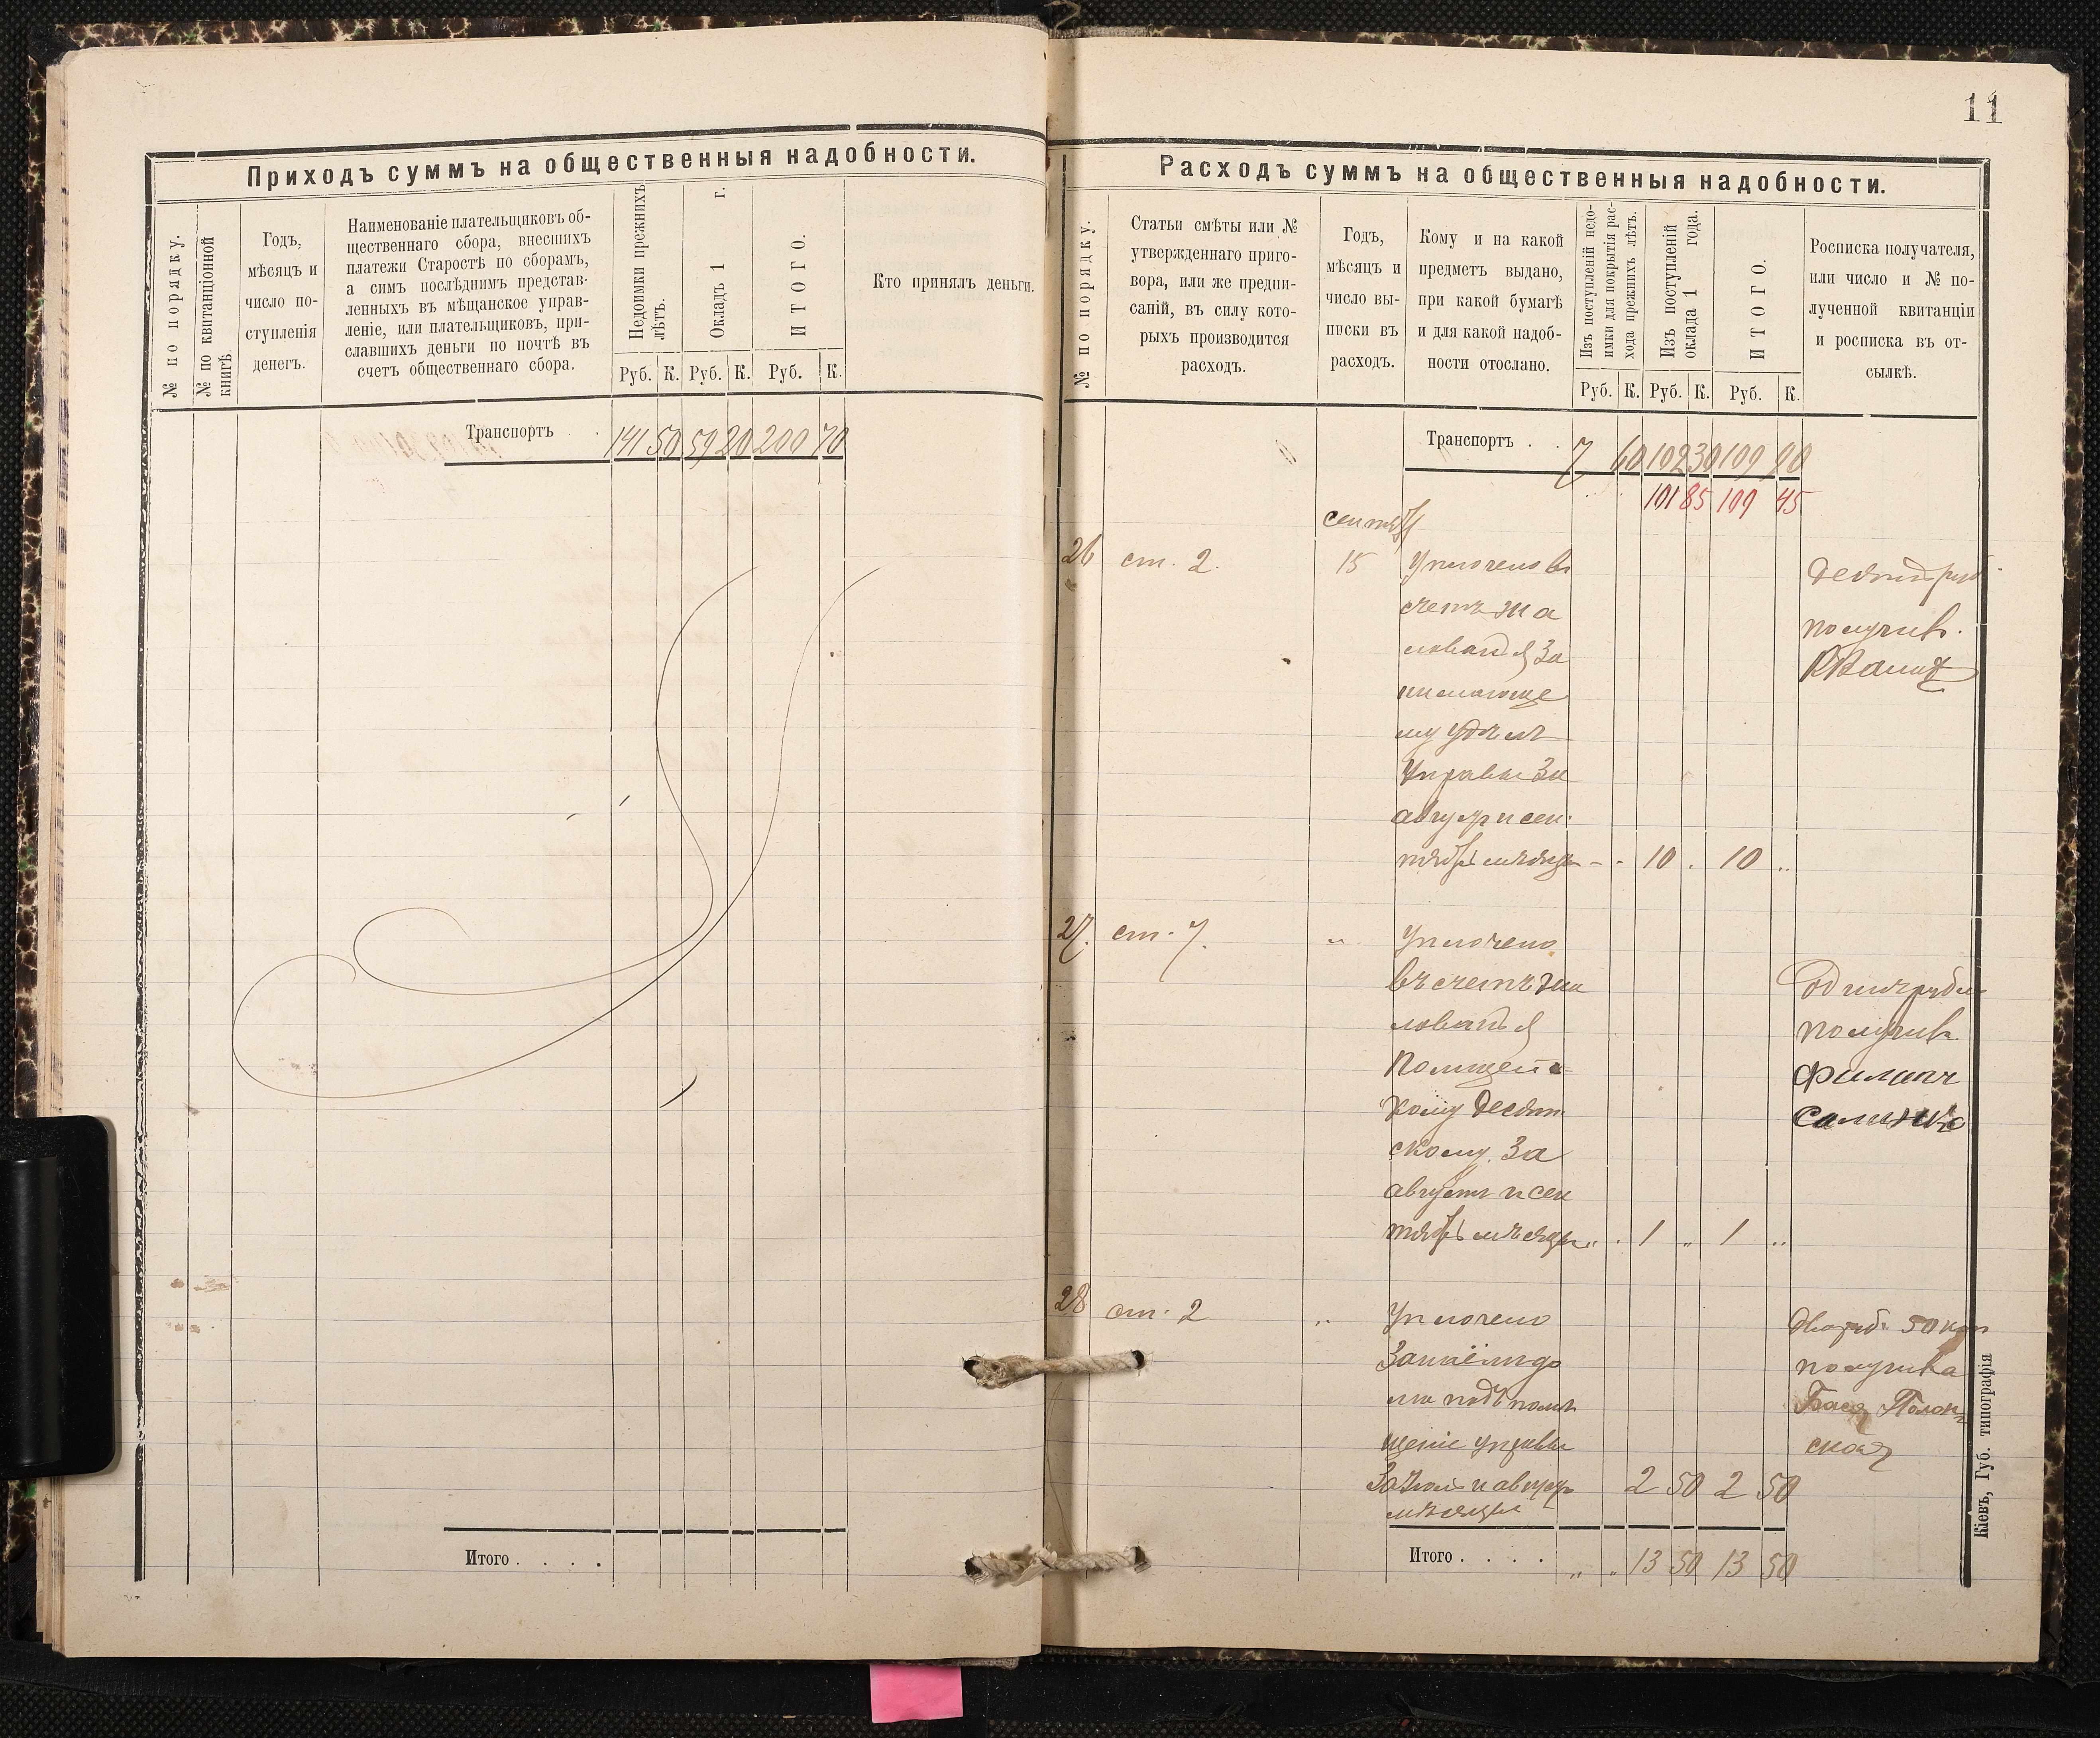 11
Приходъ суммъ на общественныя надобности.
№ по порядку.
№ по квитанціонной
книгѣ.
Годъ,
мѣсяцъ и
число по-
ступленія
денегъ.
Наименованіе плательщиковъ об-
щественнаго сбора, внесшихъ
платежи Старостѣ по сборамъ,
а симъ послѣднимъ представ-
ленныхъ въ мѣщанское управ-
леніе, или плательщиковъ, при-
славшихъ деньги по почтѣ въ
счетъ общественнаго сбора.
Недоимки прежнихъ
лѣтъ.
Окладъ 1 г.
ИТОГО.
Руб. К. Руб. К. Руб. К.
Кто принялъ деньги.
Транспортъ . . 141 50 59 20 200 70
Итого . . . .
Расходъ суммъ на общественныя надобности.
№ по порядку.
Статьи смѣты или №
утвержденнаго приго-
вора, или же предпи-
саній, въ силу кото-
рыхъ производится
расходъ.
Годъ,
мѣсяцъ и
число вы-
писки въ
расходъ.
Кому и на какой
предметъ выдано,
при какой бумагѣ
и для какой надоб-
ности отослано.
Изъ поступленій недо-
имки для покрытія рас-
хода прежнихъ лѣтъ.
Изъ поступленій
оклада 1 года.
ИТОГО.
Руб. К. Руб. К. Руб. К.
Росписка получателя,
или число и № по-
лученной квитанціи
и росписка въ от-
сылкѣ.
Транспортъ . . 7 60 102 30 109 90
101 85 109 45
сентяб
26 ст. 2. 15 Уплочено въ
счетъ жа
лованія за
нимающе
му
Управы за
августъ и сен-
тябрь мѣсяцы - - 10 . 10 ..
получивъ.
27. ст. 7. " Уплочено
въ счетъ жа
лованія
Полицейс
кому десят
скому за
августъ и сен
тябрь мѣсяцы " . 1 " 1 ..
Одинъ рубль
получивъ
Филипъ
28 ст. 2 " Уплочено
за наёмъ до
ма подъ помѣ
щеніе управы
за Іюль и августъ 2 50 2 50
мѣсяцы
Два руб. 50 коп
получила
Бася Полон
ская
Итого . . . . " " 13 50 13 50
Кіевъ, Губ. типографія